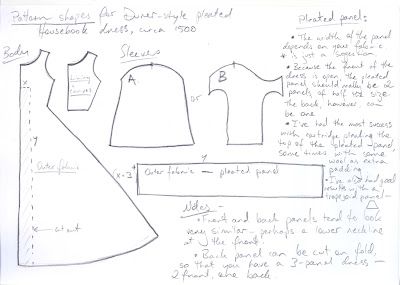 Pattern shapes for Durer-style pleated
Housebook dress, circa 1500
Body
Sleeves
x
y
outer fabric
cut out
A
or
B
y
x × 3
Outer fabric — pleated panel
Pleated panel:
• The width of the panel
depends on your fabric
is just a suggestion
• Because the front of the
dress is open the pleated
panels should really be 2
panels of half the size
the back, however can
be one
• I've had the most success
with cartridge pleating the
top of the pleated panel,
some times with some
wool as extra
padding
• I've also had good
results with a
trapezoid panel —
Notes —
• Front and back panels tend to look
very similar — perhaps a lower neckline
at the front.
• Back panel can be cut on fold,
so that you have a 3-panel dress —
2 front, one back.